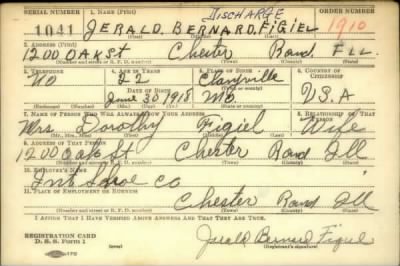 SERIAL NUMBER 1. NAME (Print) DISCHARGE ORDER NUMBER
1041 JERALD. BERNARD. FIGIEL 1910
(First) (Middle) (Last)
2. ADDRESS (Print)
1200 OAK St Chester Rand ILL
(Number and street or R. F. D. number) (Town) (County) (State)
3. TELEPHONE 4. AGE IN YEARS 5. PLACE OF BIRTH 6. COUNTRY OF CITIZENSHIP
No 22 Claryville
DATE OF BIRTH (Town or county)
June 30 1918 Mo. U.S.A
(Exchange) (Number) (Mo.) (Day) (Yr.) (State or country)
7. NAME OF PERSON WHO WILL ALWAYS KNOW YOUR ADDRESS 8. RELATIONSHIP OF THAT PERSON
Mrs. Dorothy Figiel Wife
(Mr., Mrs., Miss) (First) (Middle) (Last)
9. ADDRESS OF THAT PERSON
1200 Oak St Chester Rand Ill
(Number and street or R. F. D. number) (Town) (County) (State)
10. EMPLOYER'S NAME
Int Shoe Co
11. PLACE OF EMPLOYMENT OR BUSINESS
Chester Rand Ill
(Number and street or R. F. D. number) (Town) (County) (State)
I AFFIRM THAT I HAVE VERIFIED ABOVE ANSWERS AND THAT THEY ARE TRUE.
REGISTRATION CARD
D. S. S. Form 1 Jerald Bernard Figiel
(Registrant's signature)